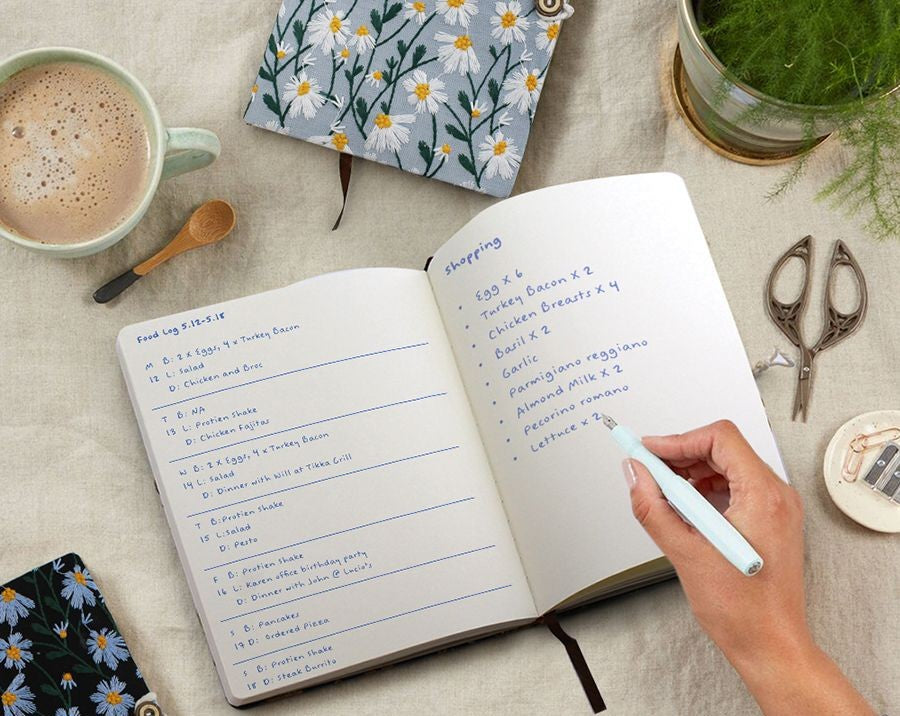 Food Log 5.12-5.18
M B: 2 x Eggs, 4 x Turkey Bacon
12 L: Salad
D: Chicken and Broc
T B: NA
13 L: Protien Shake
D: Chicken Fajitas
W B: 2 x Eggs, 4 x Turkey Bacon
14 L: Salad
D: Dinner with Will at Tikka Grill
T B: Protien Shake
15 L: Salad
D: Pesto
F B: Protien Shake
16 L: Karen office birthday party
D: Dinner with John @ Lucio's
S B: Pancakes
17 D: Ordered Pizza
S B: Protien Shake
18 D: Steak Burrito
Shopping
• Egg x 6
• Turkey Bacon x 2
• Chicken Breasts x 4
• Basil x 2
• Garlic
• Parmigiano reggiano
• Almond Milk x 2
• Pecorino romano
• Lettuce x 2